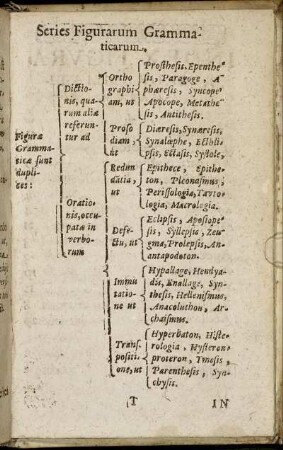 Series Figurarum Gramma-
ticarum.
Figuræ
Gramma-
ticæ sunt
dupli-
ces:
Dictio-
nis, qua-
rum aliæ
referun-
tur ad
Ortho
graphi-
am, ut
Prosthesis, Epenthe-
sis, Paragoge, A-
phæresis, Syncope
Apocope, Metathe-
sis, Antithesis.
Prosó
diam,
ut
Diæresis, Synæresis,
Synalœphe, Ecthli-
psis, Ectasis, Systole,
Oratio-
nis, occu-
patæ in
verbo-
rum
Redun
dātia,
ut
Epithece, Epithe-
ton, Pleonasmus,
Perissologia, Tavto-
logia, Macrologia.
Defe-
ctu, ut
Eclipsis, Aposiope-
sis, Syllepsis, Zeu-
gma, Prolepsis, An-
antapodoton.
Immu
tatio-
ne ut
Hypallage, Hendya-
dis, Enallage, Syn-
thesis, Hellenismus,
Anacoluthon, Ar-
chaismus.
Trans
positi-
one, ut
Hyperbaton, Histe-
rologia, Hysteron-
proteron, Tmesis,
Parenthesis, Syn-
chysis.
T IN